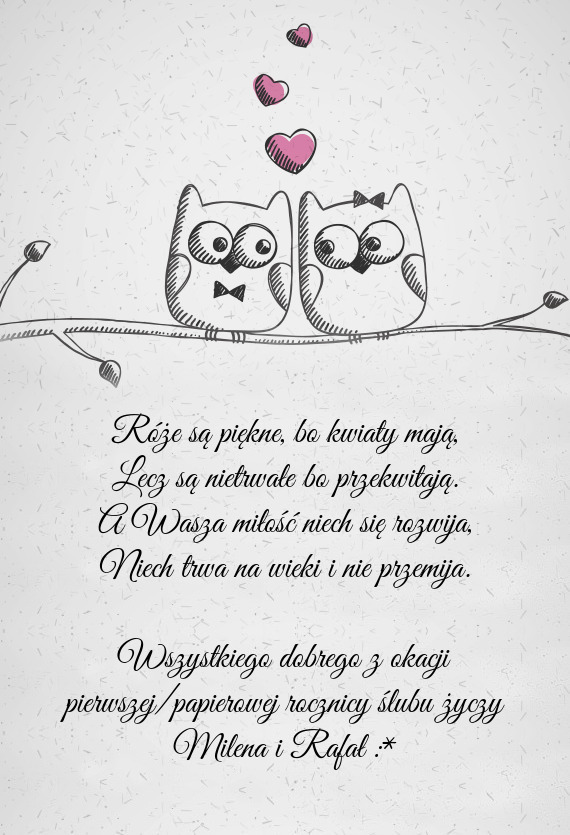 Róże są piękne, bo kwiaty mają,
Lecz są nietrwałe bo przekwitają.
A Wasza miłość niech się rozwija,
Niech trwa na wieki i nie przemija.
Wszystkiego dobrego z okacji
pierwszej/papierowej rocznicy ślubu życzy
Milena i Rafał :*